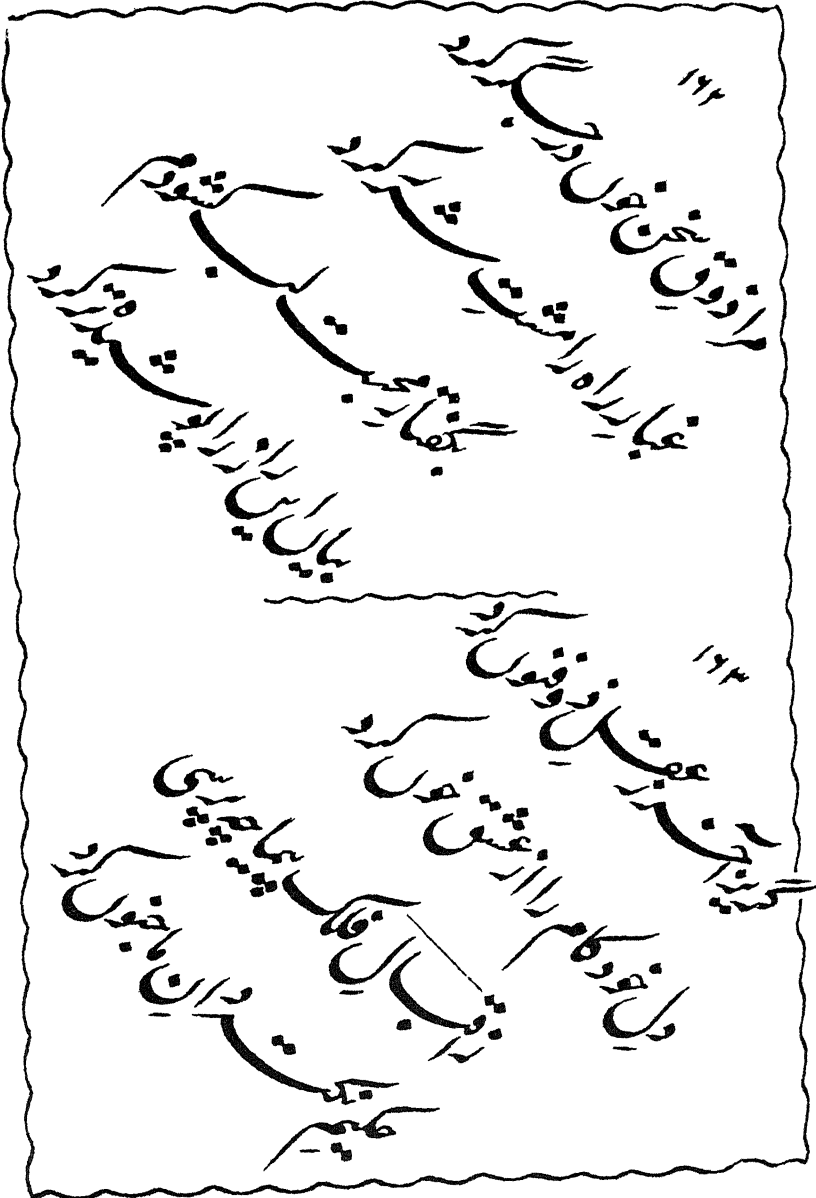 ۱۶۲
مرا ذوقِ سخن خوں در جگر کرد
غبارِ راه را مشتِ شرر کرد
بگفتارِ محبت لب گشودم
بیاں ایں راز را پوشیده تر کرد
۱۶۳
گریز آخر ز عقلِ ذوفنوں کرد
دلِ خود کام را از عشق خوں کرد
ز اقبالِ فلک پیما چه پرسی
حکیمِ نکته دانِ ما جنوں کرد